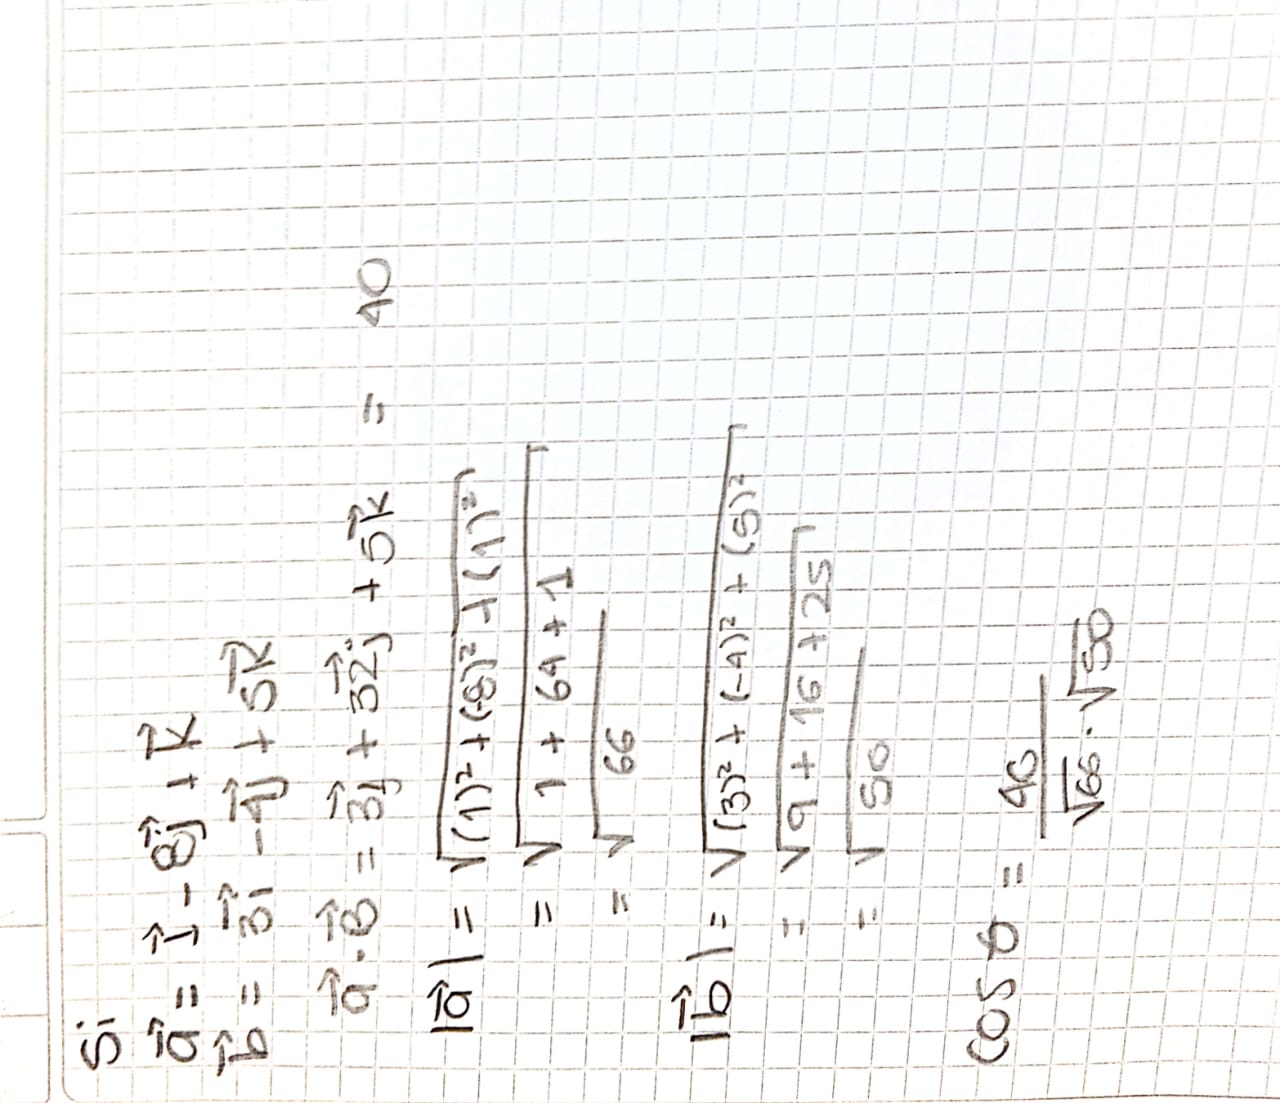 Si
a⃗ = i⃗ - 8j⃗ + k⃗
b⃗ = 3i⃗ - 4j⃗ + 5k⃗
a⃗ · b⃗ = 3j⃗ + 32j⃗ + 5k⃗ = 40
|a⃗| = √(1)² + (-8)² + (1)²
= √1 + 64 + 1
= √66
|b⃗| = √(3)² + (-4)² + (5)²
= √9 + 16 + 25
= √50
Cos θ = 40
√66 · √50